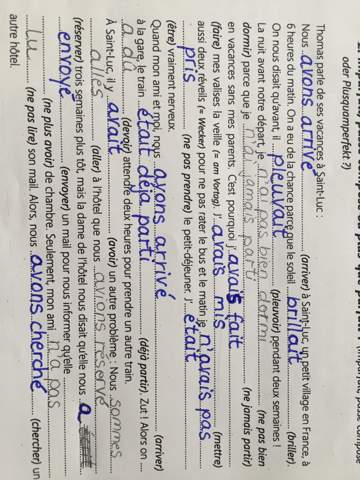 oder Plusquamperfekt ?)
Thomas parle de ses vacances à Saint-Luc :
Nous avons arrivé (arriver) à Saint-Luc, un petit village en France, à
6 heures du matin. On a eu de la chance parce que le soleil brillait (briller).
On nous disait qu'avant, il pleuvait (pleuvoir) pendant deux semaines !
La nuit avant notre départ, je n'ai pas bien dormi (ne pas bien
dormir) parce que je n'ai jamais parti (ne jamais partir)
en vacances sans mes parents. C'est pourquoi j'avais fait
(faire) mes valises la veille (= am Vortag). J'avais mis (mettre)
aussi deux réveils (= Wecker) pour ne pas rater le bus et le matin je n'avais pas
pris (ne pas prendre) le petit-déjeuner. J'était
(être) vraiment nerveux.
Quand mon ami et moi, nous avons arrivé (arriver)
à la gare, le train était déjà parti (déjà partir) Zut ! Alors on
a dû (devoir) attendre deux heures pour prendre un autre train.
À Saint-Luc, il y avait (avoir) un autre problème : Nous sommes
allés (aller) à l'hôtel que nous avions réservé
(réserver) trois semaines plus tôt, mais la dame de l'hôtel nous disait qu'elle nous a
envoyé (envoyer) un mail pour nous informer qu'elle
(ne plus avoir) de chambre. Seulement, mon ami n'a pas
lu (ne pas lire) son mail. Alors, nous avons cherché (chercher) un
autre hôtel.